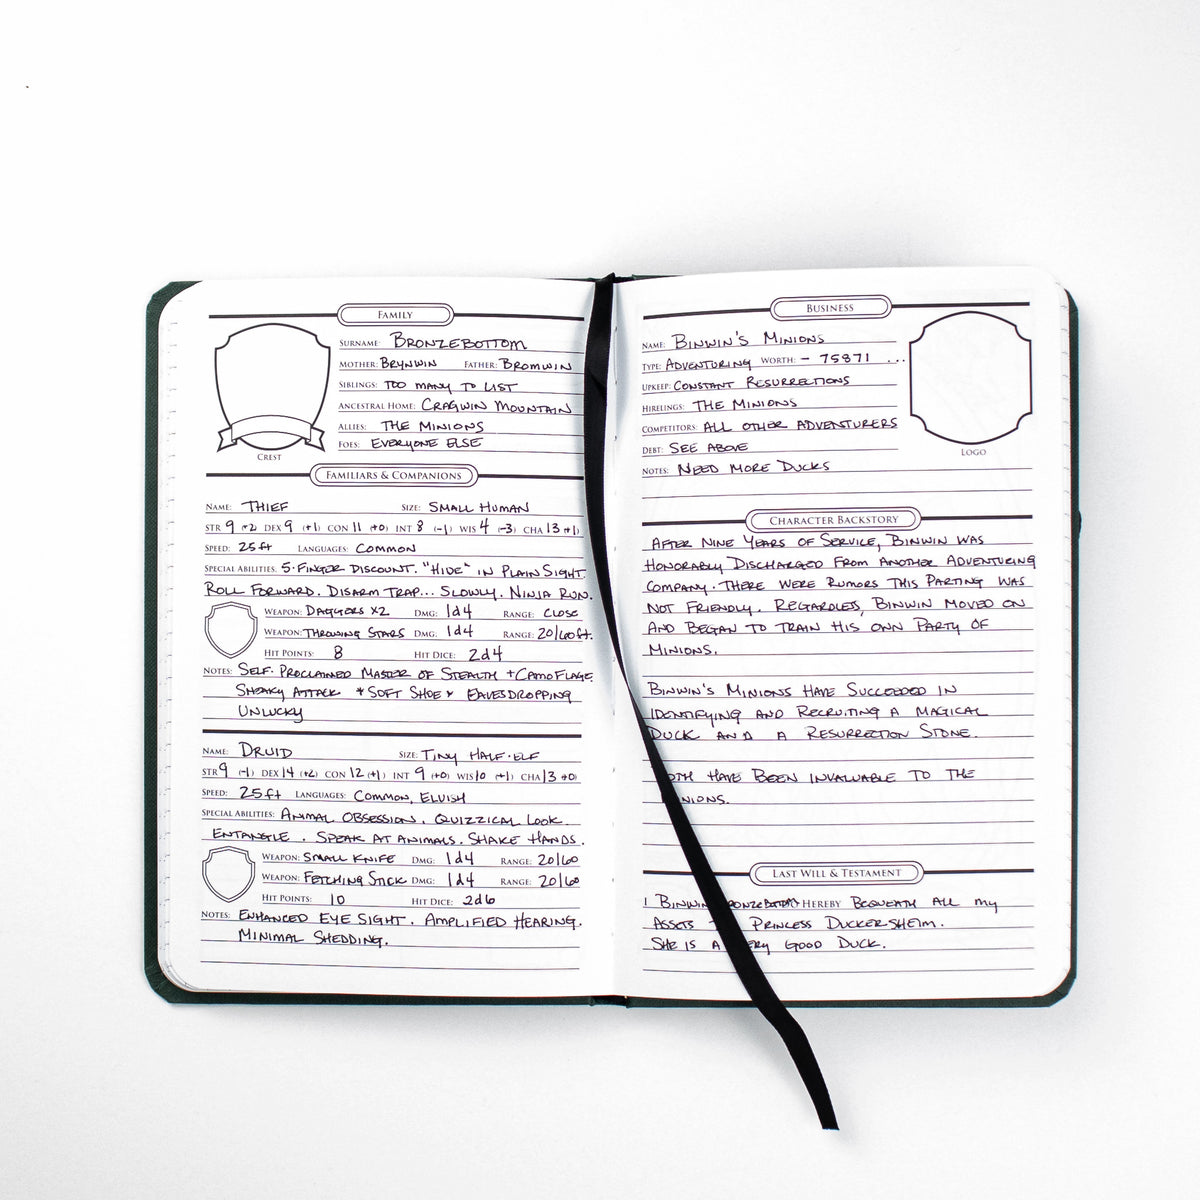 FAMILY
SURNAME: BRONZEBOTTOM
MOTHER: BRYNWIN FATHER: BROMWIN
SIBLINGS: TOO MANY TO LIST
ANCESTRAL HOME: CRAGWIN MOUNTAIN
ALLIES: THE MINIONS
FOES: EVERYONE ELSE
CREST
FAMILIARS & COMPANIONS
NAME: THIEF SIZE: SMALL HUMAN
STR 9 (+2) DEX 9 (+1) CON 11 (+0) INT 8 (-1) WIS 4 (-3) CHA 13 (+1)
SPEED: 25ft LANGUAGES: COMMON
SPECIAL ABILITIES: 5·FINGER DISCOUNT. "HIDE" IN PLAIN SIGHT.
ROLL FORWARD. DISARM TRAP... SLOWLY. NINJA RUN.
WEAPON: DAGGERS X2 DMG: 1d4 RANGE: CLOSE
WEAPON: THROWING STARS DMG: 1d4 RANGE: 20/60ft.
HIT POINTS: 8 HIT DICE: 2d4
NOTES: SELF·PROCLAIMED MASTER OF STEALTH + CAMOFLAGE.
SNEAKY ATTACK * SOFT SHOE * EAVESDROPPING
UNLUCKY
NAME: DRUID SIZE: TINY HALF·ELF
STR 9 (-1) DEX 14 (+2) CON 12 (+1) INT 9 (+0) WIS 10 (+1) CHA 13 (+0)
SPEED: 25ft LANGUAGES: COMMON, ELVISH
SPECIAL ABILITIES: ANIMAL OBSESSION. QUIZZICAL LOOK.
ENTANGLE. SPEAK AT ANIMALS. SHAKE HANDS.
WEAPON: SMALL KNIFE DMG: 1d4 RANGE: 20/60
WEAPON: FETCHING STICK DMG: 1d4 RANGE: 20/60
HIT POINTS: 10 HIT DICE: 2d6
NOTES: ENHANCED EYE SIGHT. AMPLIFIED HEARING.
MINIMAL SHEDDING.
BUSINESS
NAME: BINWIN'S MINIONS
TYPE: ADVENTURING WORTH: - 75871 ...
UPKEEP: CONSTANT RESURRECTIONS
HIRELINGS: THE MINIONS
COMPETITORS: ALL OTHER ADVENTURERS
DEBT: SEE ABOVE
NOTES: NEED MORE DUCKS
LOGO
CHARACTER BACKSTORY
AFTER NINE YEARS OF SERVICE, BINWIN WAS
HONORABLY DISCHARGED FROM ANOTHER ADVENTURING
COMPANY. THERE WERE RUMORS THIS PARTING WAS
NOT FRIENDLY. REGARDLESS, BINWIN MOVED ON
AND BEGAN TO TRAIN HIS OWN PARTY OF
MINIONS.
BINWIN'S MINIONS HAVE SUCCEEDED IN
IDENTIFYING AND RECRUITING A MAGICAL
DUCK AND A RESURRECTION STONE.
OTH HAVE BEEN INVALUABLE TO THE
NIONS.
LAST WILL & TESTAMENT
I BINWIN ONZEBOTTOM HEREBY BEQUEATH ALL MY
ASSETS PRINCESS DUCKERSHEIM.
SHE IS A ERY GOOD DUCK.